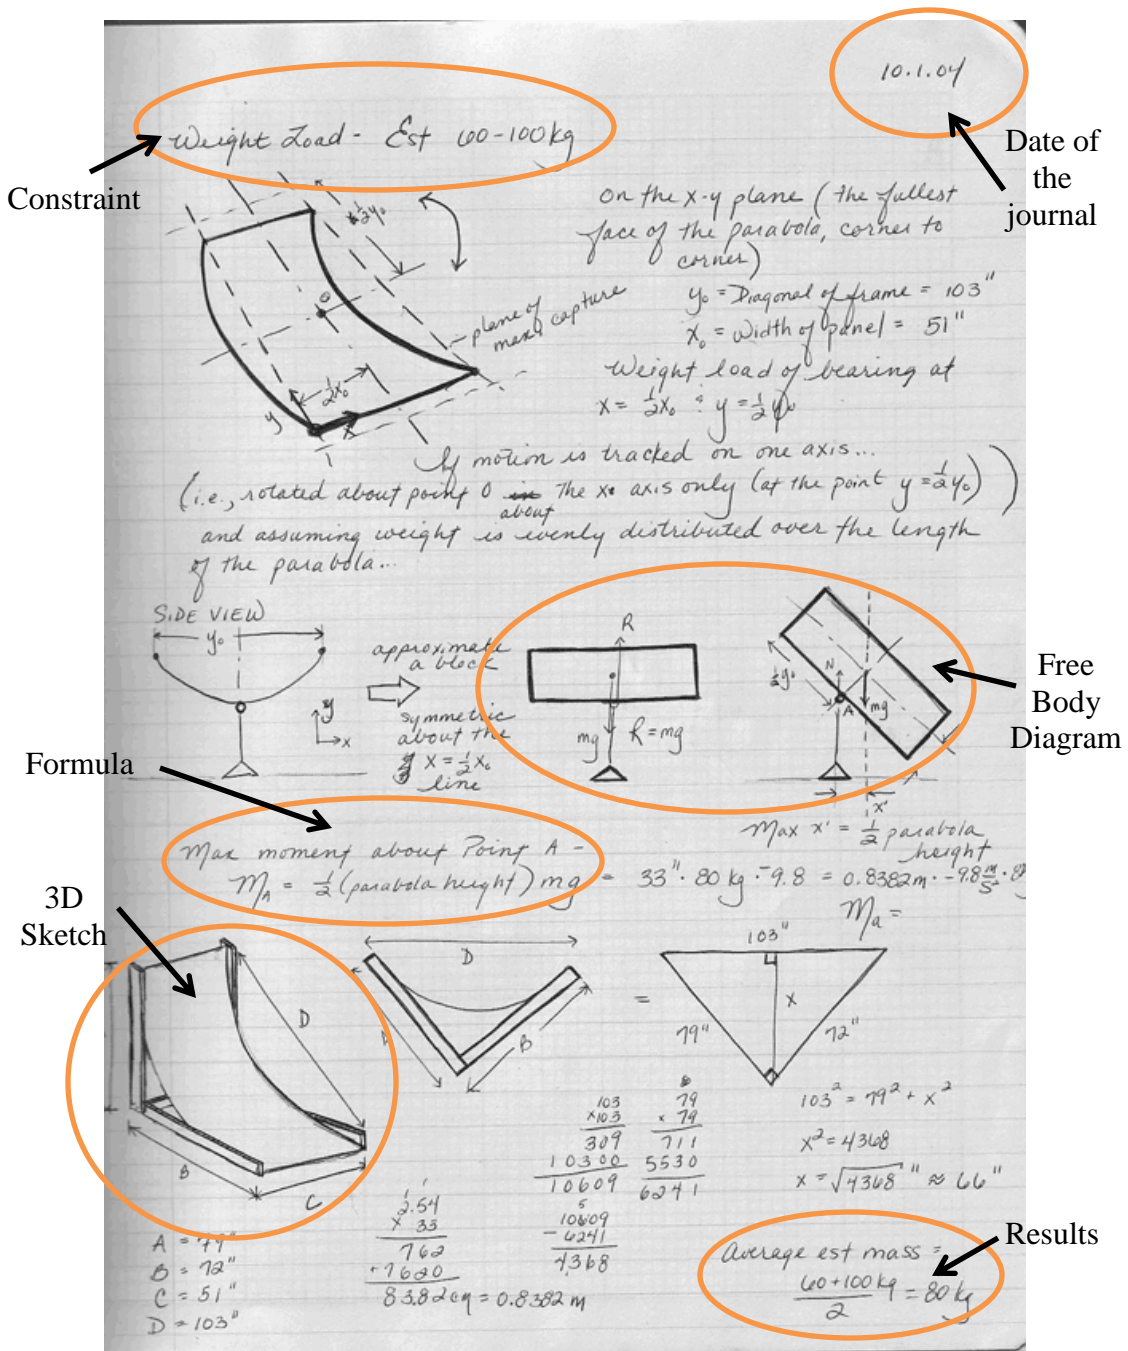 10.1.04
Weight Load - Est 60-100kg
Constraint
Date of
the
journal
½y₀
O
plane of
max capture
½x₀
y
x
On the x-y plane (the fullest
face of the parabola, corner to
corner)
y₀ = Diagonal of frame = 103"
x₀ = Width of panel = 51"
Weight load of bearing at
x = ½x₀ : y = ½y₀
If motion is tracked on one axis...
(i.e., rotated about point O about the x axis only (at the point y = ½y₀))
and assuming weight is evenly distributed over the length
of the parabola...
SIDE VIEW
y₀
y
x
approximate
a block
symmetric
about the
x = ½x₀
line
R
mg
R = mg
½y₀
N
A
mg
x'
Free
Body
Diagram
Formula
Max x' = ½ parabola
height
Max moment about Point A -
M_A = ½ (parabola height) mg = 33" · 80 kg · -9.8 = 0.8382m · -9.8 m/s² · 8
M_a =
3D
Sketch
D
B
C
D
B
=
103"
79"
x
72"
103² = 79² + x²
x² = 4368
x = √4368 " ≈ 66"
103
x103
309
10300
10609
79
x 79
711
5530
6241
10609
- 6241
4368
2.54
x 33
762
+7620
83.82cm = 0.8382 m
A = 79"
B = 72"
C = 51"
D = 103"
Results
Average est mass =
60+100 kg / 2 = 80 kg